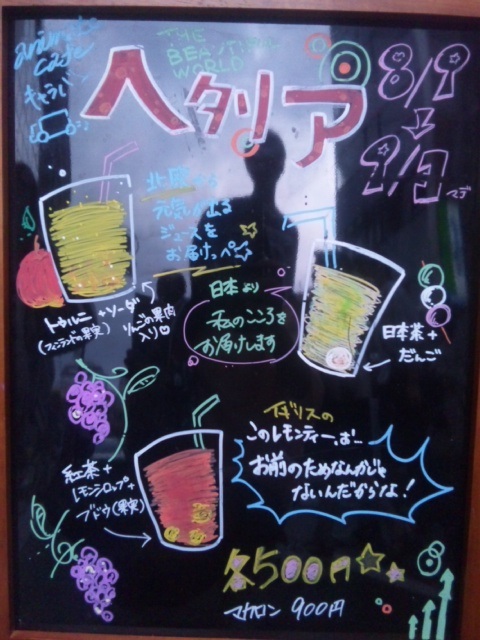 animate
cafe
キャラバン
THE
BEAUTIFUL
WORLD
ヘタリア
8/9
↓
9/1
マデ
北欧から
元気が出る
ジュースを
お届けっぺ☆
+ソーダ
(フィンランドの果実)
りんごの果肉
入り♡
日本より
私のこころを
お届けします
日本茶+
だんご
イギリスの
このレモンティーは…
お前のためなんかじゃ
ないんだからな!
紅茶+
レモンシロップ+
ブドウ(果実)
各500円☆☆
マカロン 900円